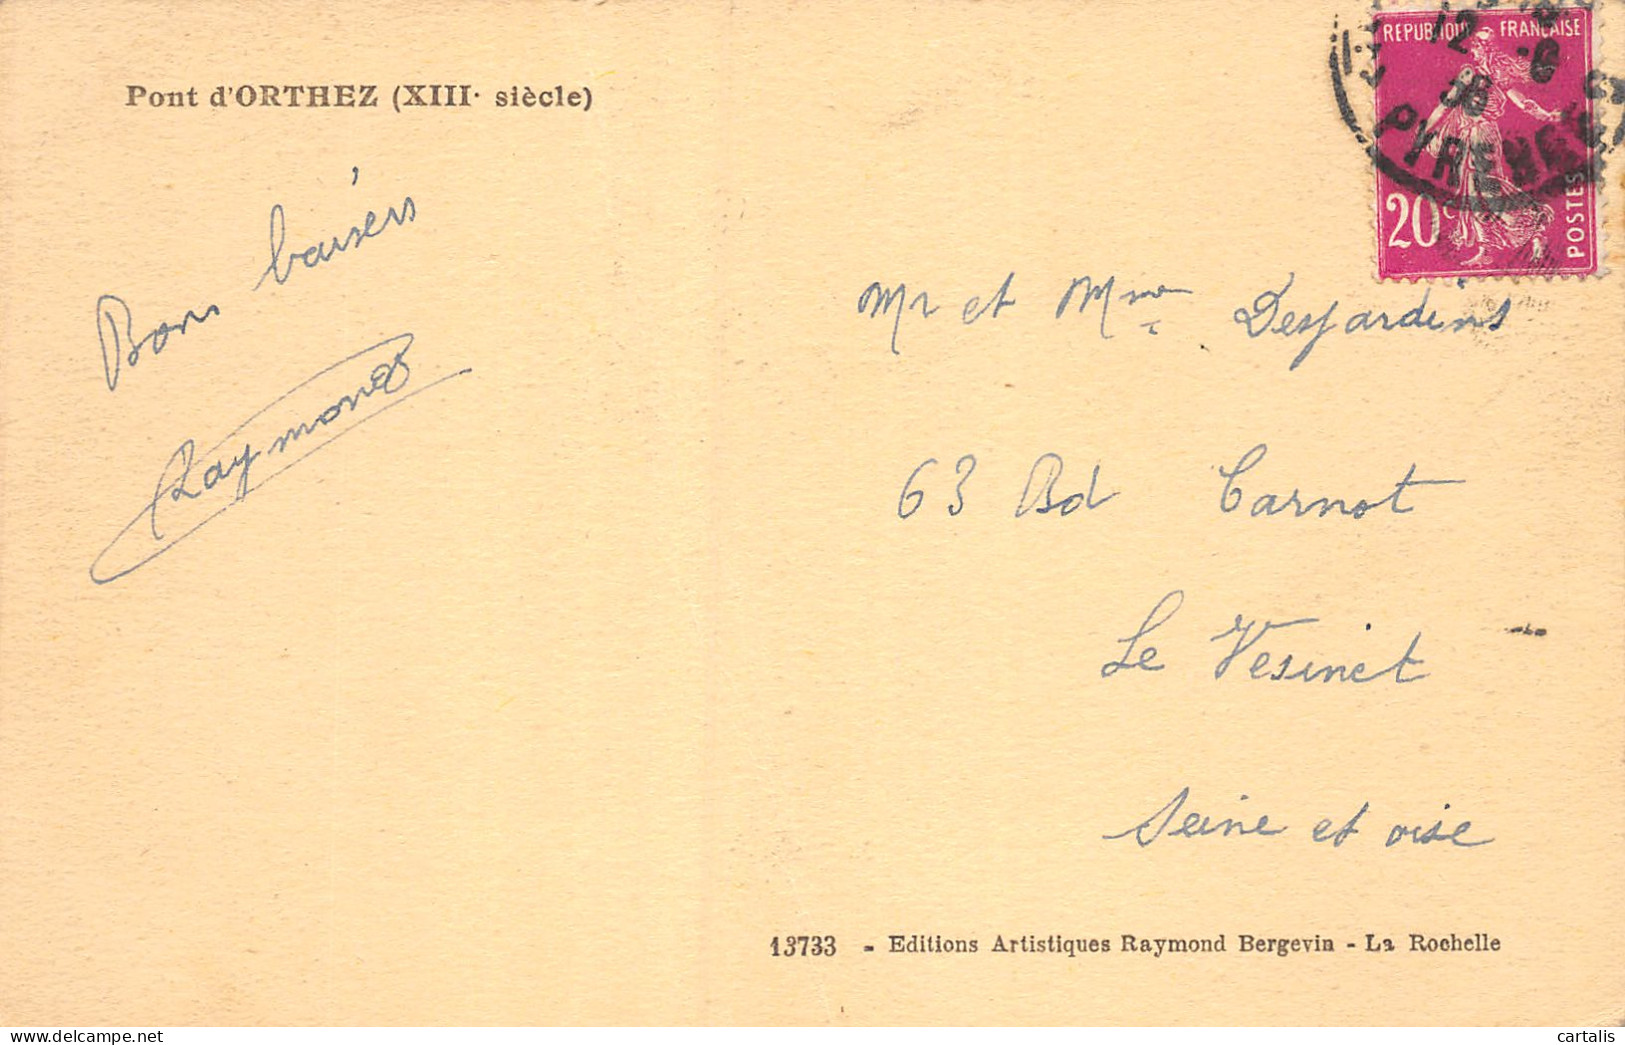 Pont d'ORTHEZ (XIII· siècle)
Bons baisers
Raymond
REPUBLIQUE FRANÇAISE
20c
POSTES
12
36
PYRENEES
Mr et Mme Desjardins
63 Bd Carnot
Le Vesinet
Seine et oise
13733 - Editions Artistiques Raymond Bergevin - La Rochelle
cartalis